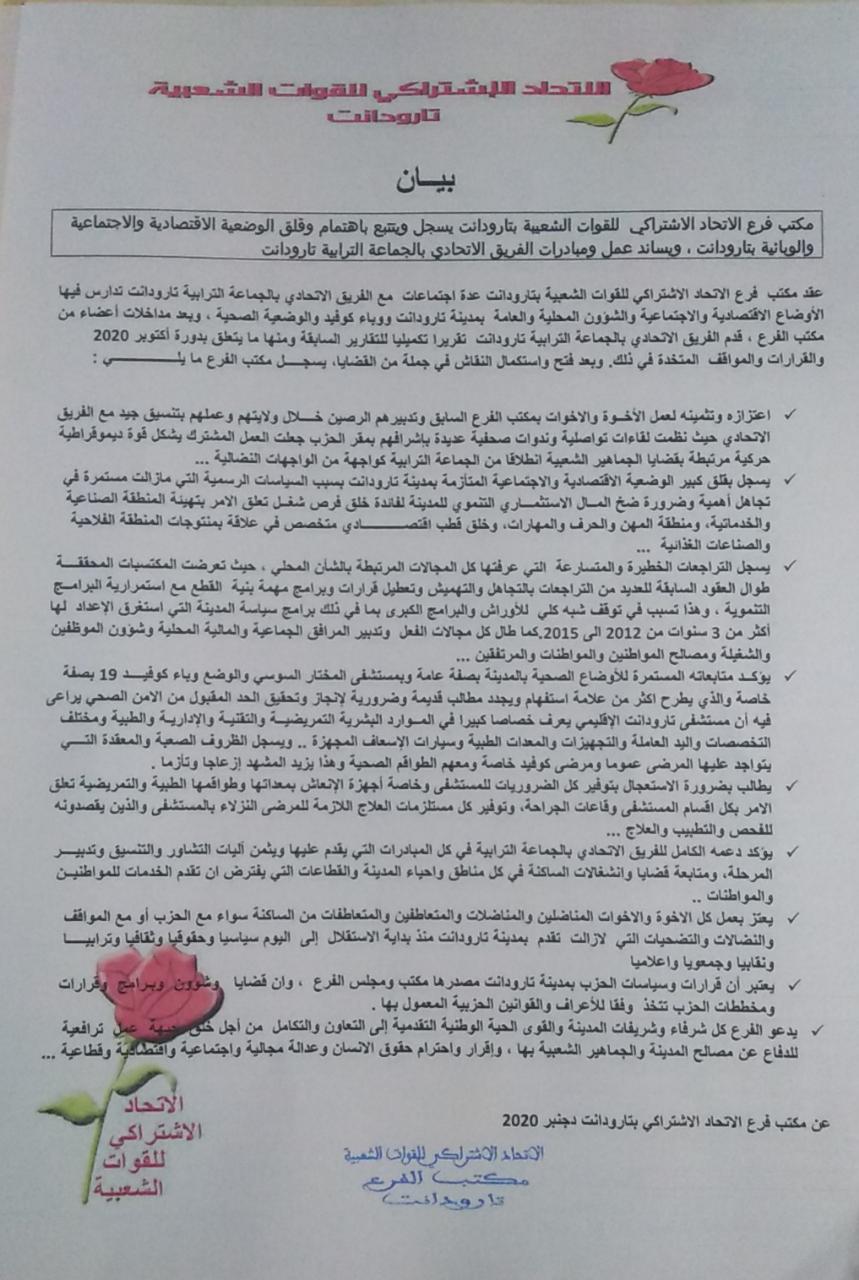 الاتحاد الإشتراكي للقوات الشعبية
تارودانت
بيـــان
مكتب فرع الاتحاد الاشتراكي للقوات الشعبية بتارودانت يسجل ويتتبع باهتمام وقلق الوضعية الاقتصادية والاجتماعية
والوبائية بتارودانت ، ويساند عمل ومبادرات الفريق الاتحادي بالجماعة الترابية تارودانت
عقد مكتب فرع الاتحاد الاشتراكي للقوات الشعبية بتارودانت عدة اجتماعات مع الفريق الاتحادي بالجماعة الترابية تارودانت تدارس فيها
الأوضاع الاقتصادية والاجتماعية والشؤون المحلية والعامة بمدينة تارودانت ووباء كوفيد والوضعية الصحية ، وبعد مداخلات أعضاء من
مكتب الفرع ، قدم الفريق الاتحادي بالجماعة الترابية تارودانت تقريرا تكميليا للتقارير السابقة ومنها ما يتعلق بدورة أكتوبر 2020
والقرارات والمواقف المتخدة في ذلك. وبعد فتح واستكمال النقاش في جملة من القضايا، يسجــل مكتب الفرع ما يلـــــــــي :
✓ اعتزازه وتثمينه لعمل الأخـوة والاخوات بمكتب الفرع السابق وتدبيرهم الرصين خـــلال ولايتهم وعملهم بتنسيق جيد مع الفريق
الاتحادي حيث نظمت لقاءات تواصلية وندوات صحفية عديدة بإشرافهم بمقر الحزب جعلت العمل المشترك يشكل قوة ديموقراطية
حركية مرتبطة بقضايا الجماهير الشعبية انطلاقا من الجماعة الترابية كواجهة من الواجهات النضالية ...
✓ يسجل بقلق كبير الوضعية الاقتصادية والاجتماعية المتأزمة بمدينة تارودانت بسبب السياسات الرسمية التي مازالت مستمرة في
تجاهل أهمية وضرورة ضخ المـال الاستثمـاري التنموي للمدينة لفائدة خلق فرص شغـل تعلق الامر بتهيئة المنطقة الصناعية
والخدماتية، ومنطقة المهن والحرف والمهارات، وخلق قطب اقتصـــــــــادي متخصص في علاقة بمنتوجات المنطقة الفلاحية
والصناعات الغذائية ...
✓ يسجل التراجعات الخطيرة والمتسارعة التي عرفتها كل المجالات المرتبطة بالشأن المحلي ، حيث تعرضت المكتسبات المحققــة
طوال العقود السابقة للعديد من التراجعات بالتجاهل والتهميش وتعطيل قرارات وبرامج مهمة بنية القطع مع استمرارية البرامــج
التنموية ، وهذا تسبب في توقف شبه كلي للأوراش والبرامج الكبرى بما في ذلك برامج سياسة المدينة التي استغرق الإعداد لها
أكثر من 3 سنوات من 2012 الى 2015.كما طال كل مجالات الفعل وتدبير المرافق الجماعية والمالية المحلية وشؤون الموظفين
والشغيلة ومصالح المواطنين والمواطنات والمرتفقين ...
✓ يؤكـد متابعاته المستمرة للأوضاع الصحية بالمدينة بصفة عامة وبمستشفى المختار السوسي والوضع وباء كوفيـــد 19 بصفة
خاصة والذي يطرح اكثر من علامة استفهام ويجدد مطالب قديمة وضرورية لإنجاز وتحقيق الحد المقبول من الامن الصحي يراعى
فيه أن مستشفى تارودانت الإقليمي يعرف خصاصا كبيرا في المـوارد البشرية التمريضيــة والتقنية والإدارية والطبية ومختلف
التخصصات واليد العاملة والتجهيزات والمعدات الطبية وسيارات الإسعاف المجهزة .. ويسجل الظروف الصعبة والمعقدة التـــي
يتواجد عليها المرضى عموما ومرضى كوفيد خاصة ومعهم الطواقم الصحية وهذا يزيد المشهد إزعاجا وتأزما .
✓ يطالب بضرورة الاستعجال بتوفير كل الضروريات للمستشفى وخاصة أجهزة الإنعاش بمعداتها وطواقمها الطبية والتمريضية تعلق
الامر بكل اقسام المستشفى وقاعات الجراحة، وتوفير كل مستلزمات العلاج اللازمة للمرضى النزلاء بالمستشفى والذين يقصدونه
للفحص والتطبيب والعلاج ...
✓ يؤكد دعمه الكامل للفريق الاتحادي بالجماعة الترابية في كل المبادرات التي يقدم عليها ويثمن آليات التشاور والتنسيق وتدبيــر
المرحلة، ومتابعة قضايا وانشغالات الساكنة في كل مناطق واحياء المدينة والقطاعات التي يفترض ان تقدم الخدمات للمواطنيـن
والمواطنات ..
✓ يعتز بعمل كل الاخوة والاخوات المناضلين والمناضلات والمتعاطفين والمتعاطفات من الساكنة سواء مع الحزب أو مع المواقف
والنضالات والتضحيات التي لازالت تقدم بمدينة تارودانت منذ بداية الاستقلال إلى اليوم سياسيا وحقوقيا وثقافيا وترابيـــا
ونقابيا وجمعويا واعلاميا
✓ يعتبر أن قرارات وسياسات الحزب بمدينة تارودانت مصدرها مكتب ومجلس الفرع ، وان قضايا وشؤون وبرامج وقرارات
ومخططات الحزب تتخذ وفقا للأعراف والقوانين الحزبية المعمول بها .
✓ يدعو الفرع كل شرفاء وشريفات المدينة والقوى الحية الوطنية التقدمية إلى التعاون والتكامل من أجل خلق جبهة عمل ترافعية
للدفاع عن مصالح المدينة والجماهير الشعبية بها ، وإقرار واحترام حقوق الانسان وعدالة مجالية واجتماعية واقتصادية وقطاعية ...
عن مكتب فرع الاتحاد الاشتراكي بتارودانت دجنبر 2020
الاتحاد الاشتراكي للقوات الشعبية
مكتب الفرع
تارودانت
الاتحاد
الاشتراكي
للقوات
الشعبية